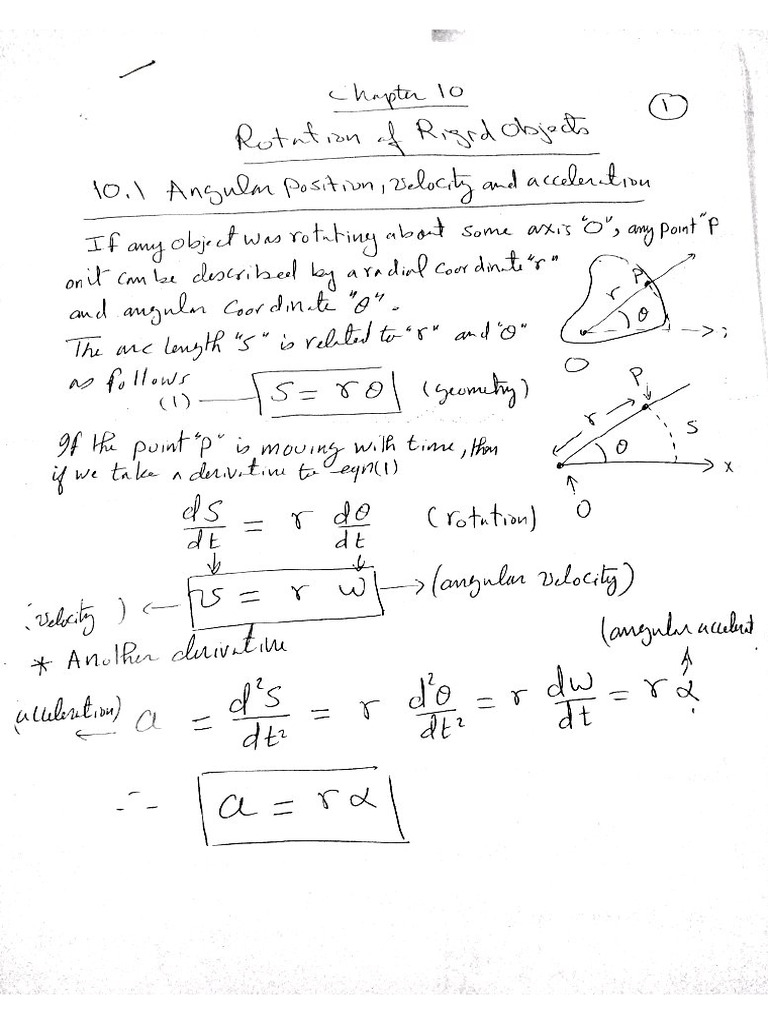 Chapter 10
1
Rotation of Rigid Objects
10.1 Angular position, velocity and acceleration
If any object was rotating about some axis "O", any point "P
on it can be described by a radial coordinate "r"
and angular coordinate "θ".
The arc length "s" is related to "r" and "θ"
as follows
(1) — S = rθ (geometry)
P
r
θ
O
P
r
S
θ
x
O
If the point "p" is moving with time, then
if we take a derivative to eqn(1)
dS/dt = r dθ/dt (rotation)
velocity) ← v = r w → (angular velocity)
* Another derivative
(angular accelerat
(acceleration) ← a = d²S/dt² = r d²θ/dt² = r dw/dt = r α
∴ a = r α